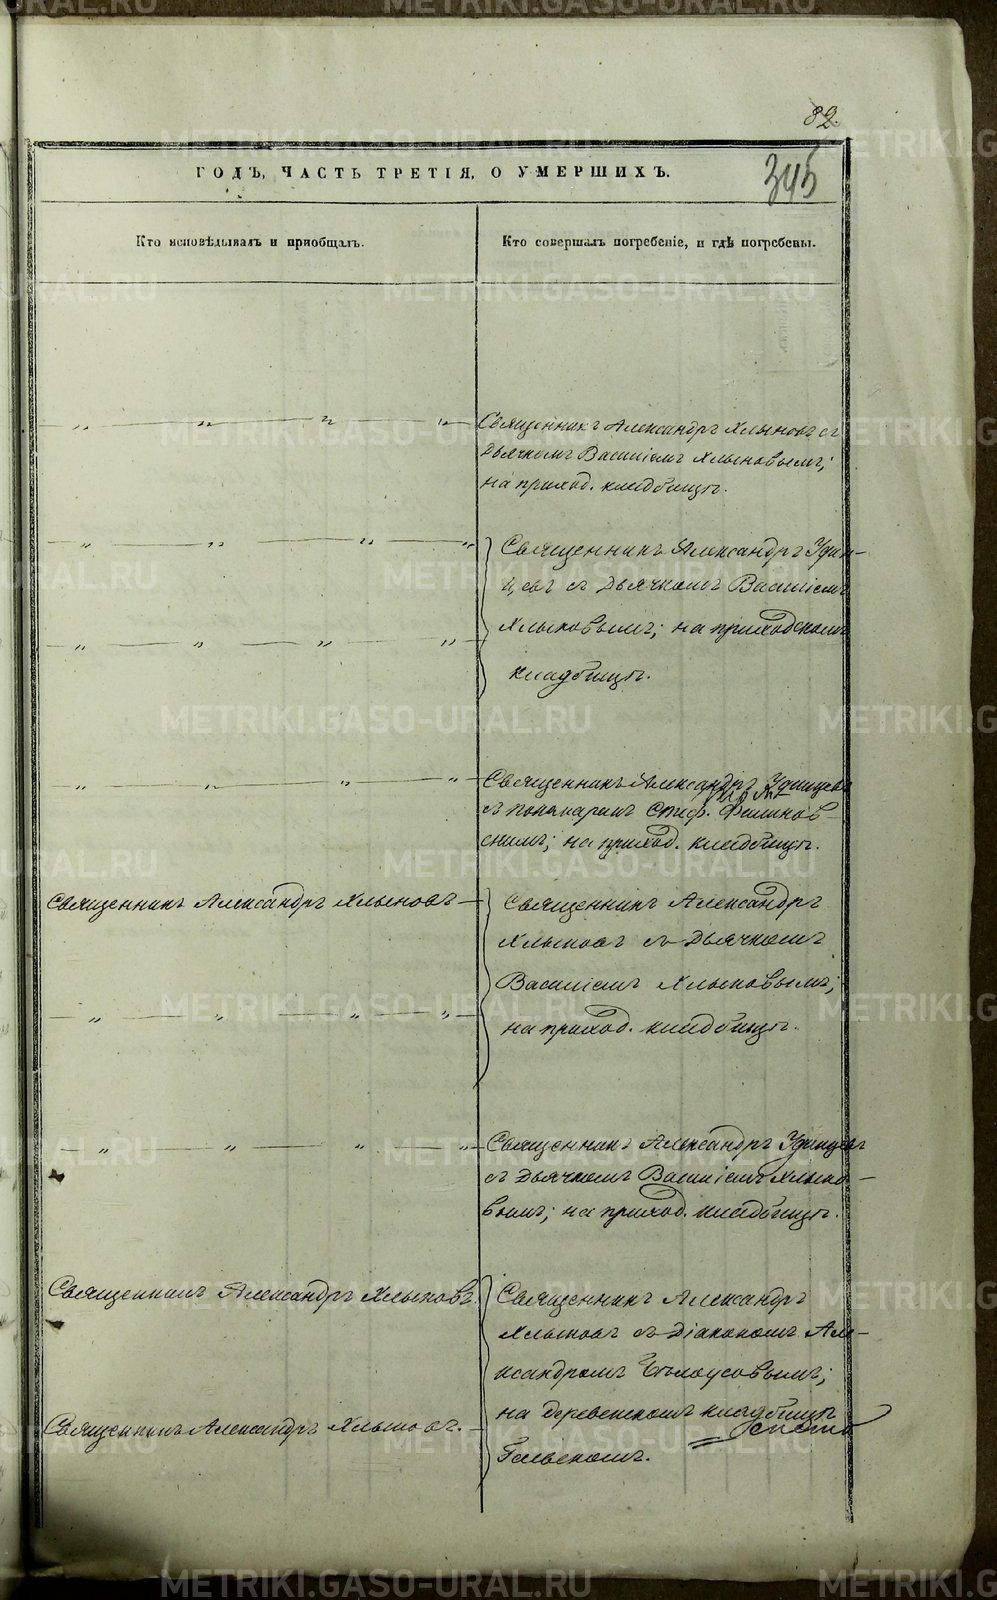 82.
345
ГОДЪ, ЧАСТЬ ТРЕТІЯ, О УМЕРШИХЪ.
Кто исповѣдывалъ и пріобщалъ.
Кто совершалъ погребеніе, и гдѣ погребены.
„ „ „ „
Священникъ Александръ Хлыновъ съ
Дьячкомъ Василіемъ Хлыновымъ;
на приход. кладбищѣ.
„ „ „ „
Священникъ Александръ Удин-
цевъ съ Дьячкомъ Василіемъ
Хлыновымъ; на приходскомъ
„ „ „ „
кладбищѣ.
„ „ „ „
Священникъ Александръ Удинцевъ
съ пономаремъ Стеф.
скимъ; на приход. кладбищѣ.
Священникъ Александръ Хлыновъ
Священникъ Александръ
Хлыновъ съ Дьячкомъ
Василіемъ Хлыновымъ;
„ „ „ „
на приход. кладбищѣ.
„ „ „ „
Священникъ Александръ Удинцевъ
съ Дьячкомъ Василіемъ Хлыно-
вымъ; на приход. кладбищѣ.
Священникъ Александръ Хлыновъ.
Священникъ Александръ
Хлыновъ съ Діакономъ Але-
ксандромъ Бѣлоусовымъ;
на деревенскомъ кладбищѣ
Священникъ Александръ Хлыновъ.
METRIKI.GASO-URAL.RU